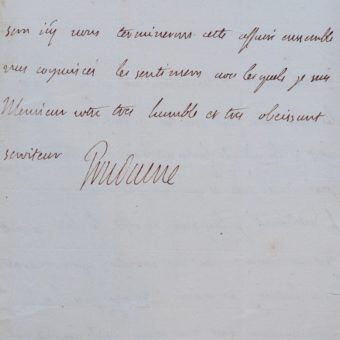 sera icy nous terminerons cette affaire ensemble
vous connoissés les sentimens avec lesquels je suis
Monsieur votre tres humble et tres obeissant
serviteur